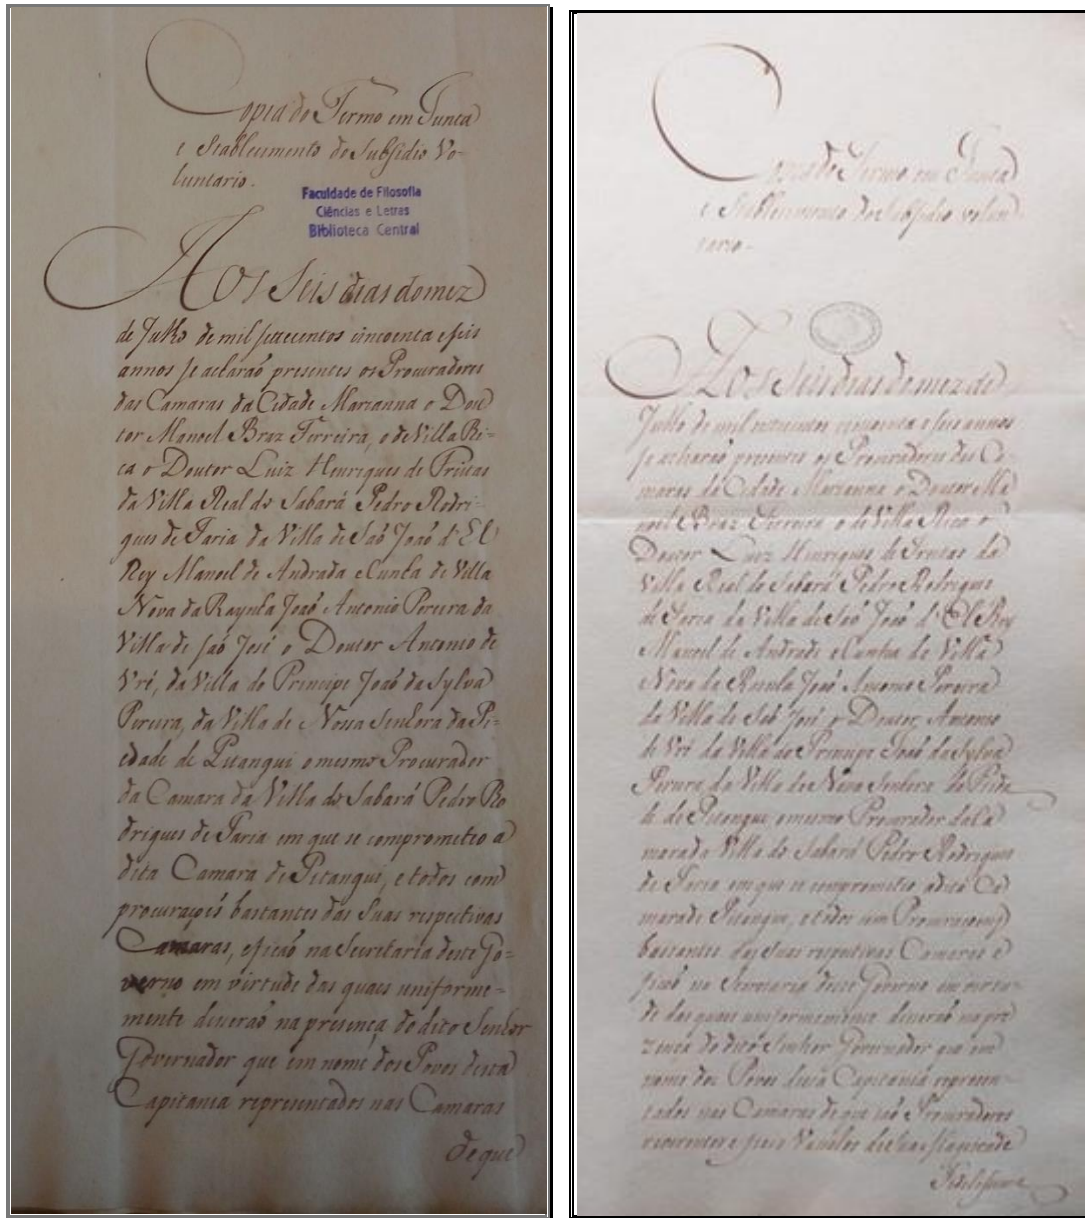 Copia do Termo em Junta
e Stablecimento do Subsidio Vo-
luntario.
Faculdade de Filosofia
Ciências e Letras
Biblioteca Central
Aos Seis dias do mez
de Julho de mil settecentos cincoenta e seis
annos se acharaõ presentes os Procuradores
das Camaras da Cidade Marianna o Dou
tor Manoel Braz Ferreira, o de Villa Ri=
ca o Doutor Luiz Henriques de Freitas
da Villa Real do Sabará Pedro Rodri-
gues de Faria da Villa de Saõ Joaõ d'El
Rey Manoel de Andrada e Cunha de Villa
Nova da Raynha Joaõ Antonio Pereira da
Villa de Saõ José o Doutor Antonio de
Vri, da Villa do Principe Joaõ da Sylva
Pereira, da Villa de Nossa Senhora da Pi=
edade de Pitangui o mesmo Procurador
da Camara da Villa do Sabará Pedro Ro
drigues de Faria em que se comprometio a
dita Camara de Pitangui, e todos com
procuraçoẽs bastantes das Suas respectivas
Camaras, e ficaõ na Secretaria deste Go=
verno em virtude das quais uniforme=
mente disseraõ na presença do dito Senhor
Governador que em nome dos Povos desta
Capitania representados nas Camaras
de que
Copia do Termo em Junta
e Stablecimento do Subsidio volun-
tario.
Aos Seis dias do mez de
Julho de mil setecentos cincoenta e seis annos
se acharaõ presentes os Procuradores das Ca-
maras da Cidade Marianna o Doutor Ma
noel Braz Ferreira o de Villa Rica o
Doutor Luiz Henriques de Freitas da
Villa Real do Sabará Pedro Rodrigues
de Faria da Villa de Saõ Joaõ d'El Rey
Manoel de Andrade e Cunha de Villa
Nova da Rainha Joaõ Antonio Pereira
da Villa de Saõ José o Doutor Antonio
de Vri da Villa do Principe Joaõ da Sylva
Pereira da Villa de Nossa Senhora da Pieda
de de Pitangui o mesmo Procurador da Ca
mara da Villa do Sabará Pedro Rodrigues
de Faria em que se comprometio a dita Ca
mara de Pitangui, e todos com Procuraçoens
bastantes das suas respectivas Camaras e
ficaõ na Secretaria deste Governo em virtu
de das quais uniformemente disseraõ na pre
zença do dito Senhor Governador que em
nome dos Povos desta Capitania represen-
tados nas Camaras de que saõ Procuradores
Vassalos de Sua Magestade
Fidelissima